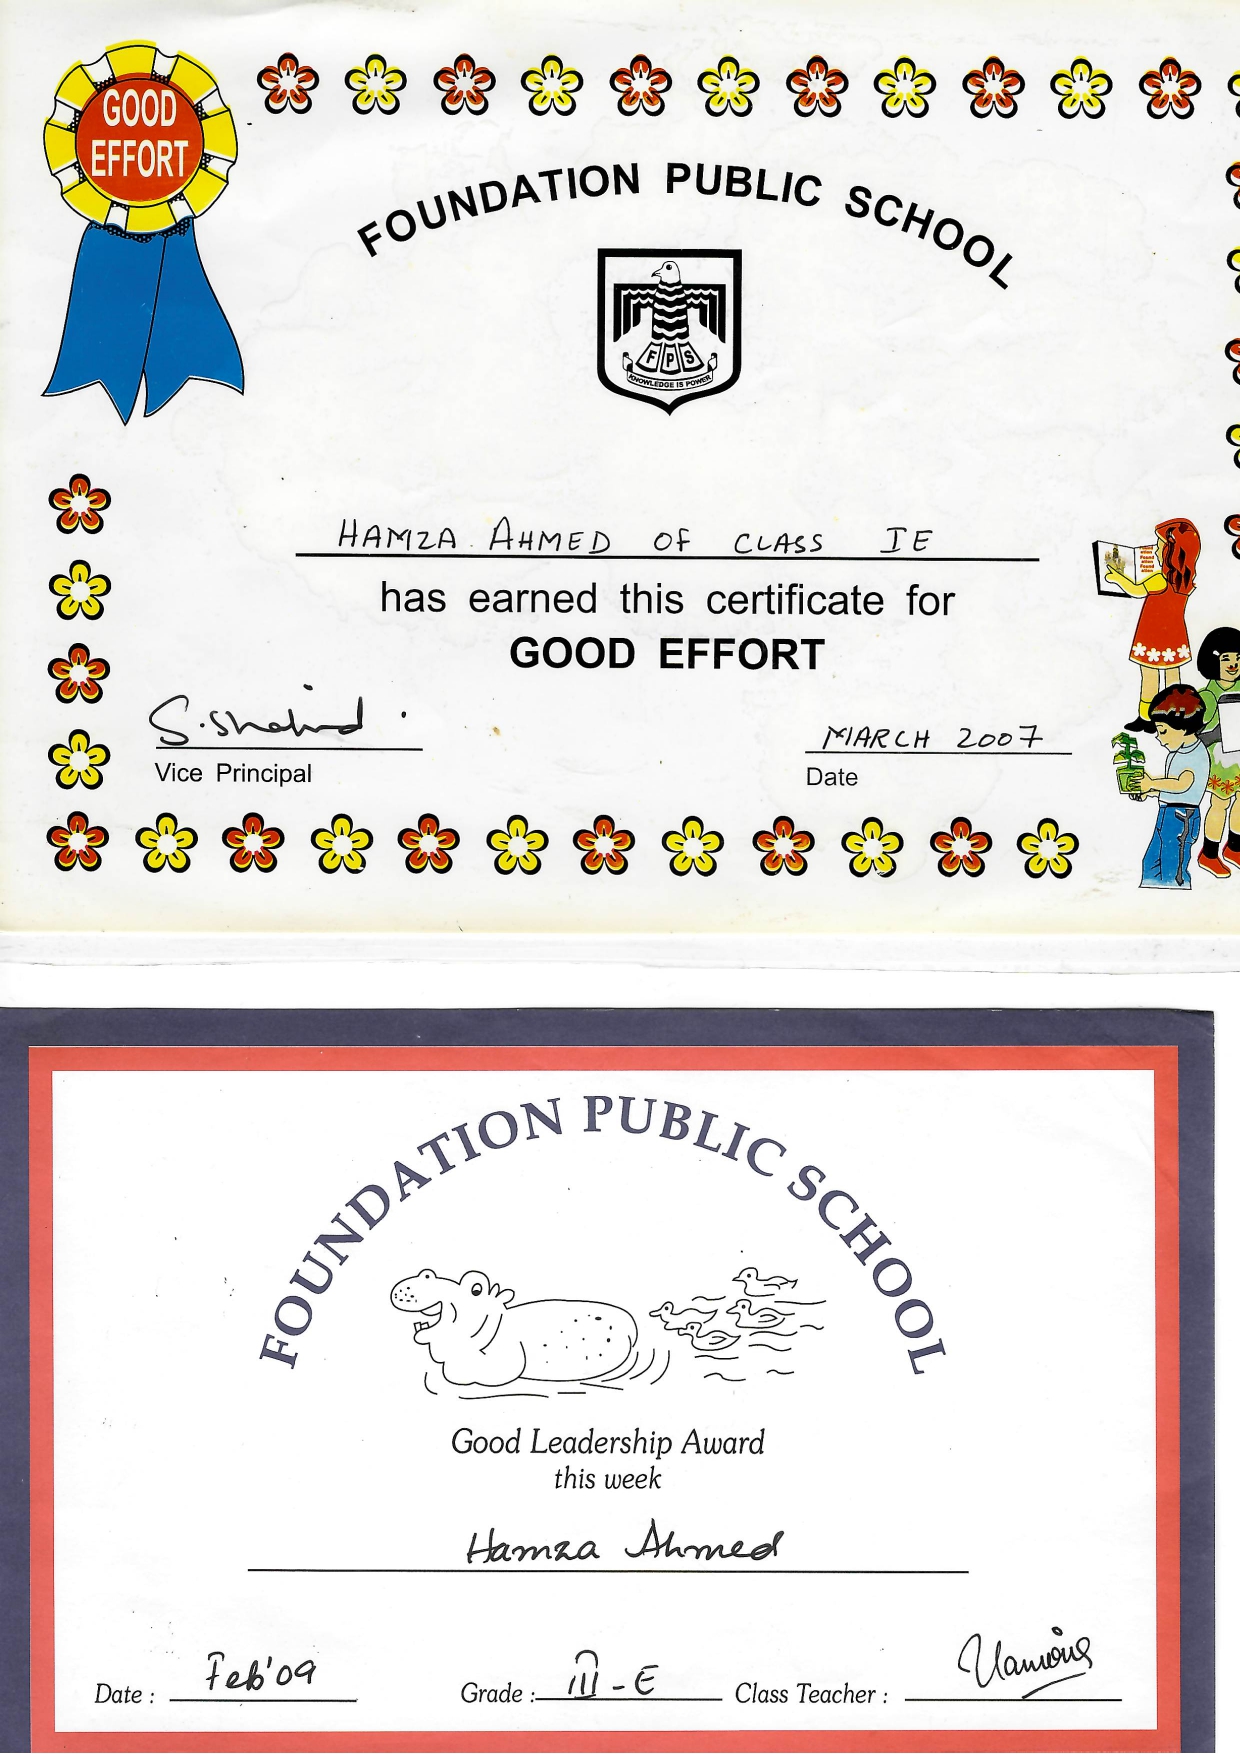 GOOD
EFFORT
FOUNDATION PUBLIC SCHOOL
F P S
KNOWLEDGE IS POWER
HAMZA AHMED OF CLASS IE
has earned this certificate for
GOOD EFFORT
S. Shahid
MARCH 2007
Vice Principal
Date
FOUNDATION PUBLIC SCHOOL
Good Leadership Award
this week
Hamza Ahmed
Date : Feb'09 Grade : III - E Class Teacher :